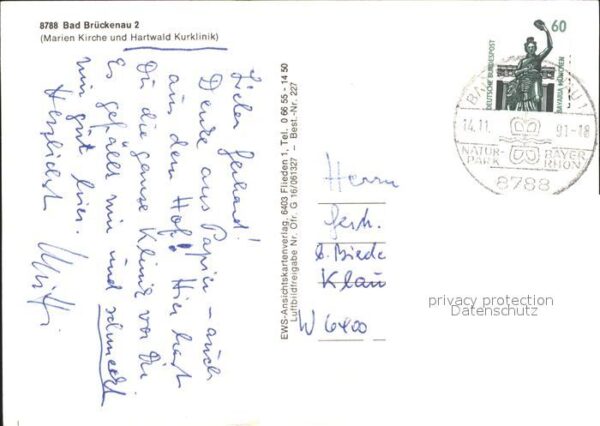 8788 Bad Brückenau 2
(Marien Kirche und Hartwald Kurklinik)
Lieber Gerhard!
Danke aus Papier – auch
aus dem Hof! Hier hast
Du die ganze Klinik vor Dir
Es gefällt mir und schmeckt
mir gut hier.
Herzlichst
EWS-Ansichtskartenverlag, 6403 Flieden 1, Tel. 0 66 55 - 14 50
Luftbildfreigabe Nr. Ofr. G 16/061327 – Best.-Nr. 227
60
DEUTSCHE BUNDESPOST
BAVARIA MÜNCHEN
14.11.
91-18
NATUR-
PARK
BAYER
RHÖN
8788
Herrn
Gerh.
Klau
W 6400
privacy protection
Datenschutz